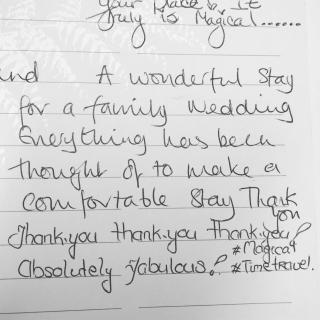 Your Place & It
Truly is Magical......
ind A wonderful Stay
for a family wedding
Everything has been
thought of to make a
comfortable Stay Thank
you
Thank.you thank.you thank.you!
#Magical
Absolutely Fabulous! #Timetravel.